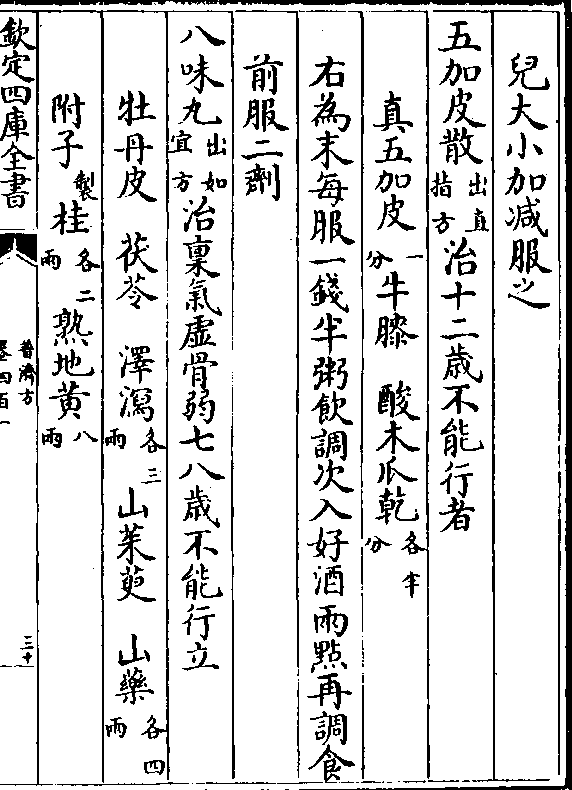 兒大小加减服之
五加皮散出直指方治十二歳不能行者
真五加皮一分牛膝 酸木瓜乾各半分
右為末每服一錢半粥飲調次入好酒兩點再調食
前服二劑
八味丸出如宜方治稟氣虛骨弱七八歳不能行立
牡丹皮 茯苓 澤瀉各三兩山茱萸 山藥各四兩
附子製桂各二兩熟地黄八兩
欽定四庫全書
普濟方
卷四百一
三十